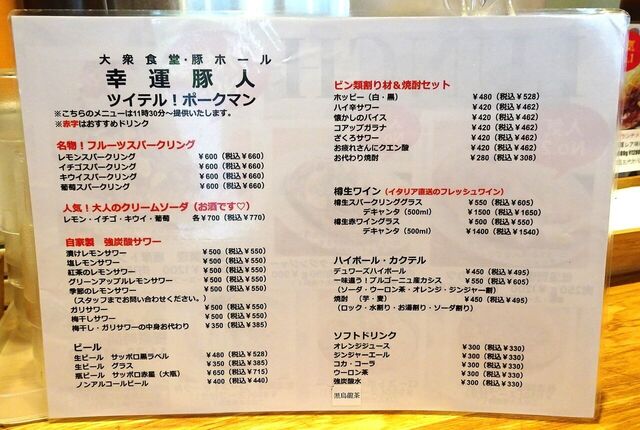 大衆食堂・豚ホール
幸運豚人
ツイテル！ポークマン
※こちらのメニューは11時30分～提供いたします。
※赤字はおすすめドリンク
名物！フルーツスパークリング
レモンスパークリング ￥600（税込￥660）
イチゴスパークリング ￥600（税込￥660）
キウイスパークリング ￥600（税込￥660）
葡萄スパークリング ￥600（税込￥660）
人気！大人のクリームソーダ（お酒です♡）
レモン・イチゴ・キウイ・葡萄 各￥700（税込￥770）
自家製 強炭酸サワー
漬けレモンサワー ￥500（税込￥550）
塩レモンサワー ￥500（税込￥550）
紅茶のレモンサワー ￥500（税込￥550）
グリーンアップルレモンサワー ￥500（税込￥550）
季節のレモンサワー ￥500（税込￥550）
（スタッフまでお問い合わせください。）
ガリサワー ￥500（税込￥550）
梅干しサワー ￥500（税込￥550）
梅干し・ガリサワーの中身お代わり ￥350（税込￥385）
ビール
生ビール サッポロ黒ラベル ￥480（税込￥528）
生ビール グラス ￥350（税込￥385）
瓶ビール サッポロ赤星（大瓶） ￥650（税込￥715）
ノンアルコールビール ￥400（税込￥440）
ビン類割り材＆焼酎セット
ホッピー（白・黒） ￥480（税込￥528）
ハイ辛サワー ￥420（税込￥462）
懐かしのバイス ￥420（税込￥462）
コアップガラナ ￥420（税込￥462）
ざくろサワー ￥420（税込￥462）
お疲れさんにクエン酸 ￥420（税込￥462）
お代わり焼酎 ￥280（税込￥308）
樽生ワイン（イタリア直送のフレッシュワイン）
樽生スパークリンググラス ￥550（税込￥605）
デキャンタ（500ml） ￥1500（税込￥1650）
樽生赤ワイングラス ￥550（税込￥605）
デキャンタ（500ml） ￥1400（税込￥1540）
ハイボール・カクテル
デュワーズハイボール ￥450（税込￥495）
一味違う！ブルゴーニュ産カシス ￥550（税込￥605）
（ソーダ・ウーロン茶・オレンジ・ジンジャー割）
焼酎 （芋・麦） ￥450（税込￥495）
（ロック・水割り・お湯割り・ソーダ割り）
ソフトドリンク
オレンジジュース ￥300（税込￥330）
ジンジャーエール ￥300（税込￥330）
コカ・コーラ ￥300（税込￥330）
ウーロン茶 ￥300（税込￥330）
強炭酸水 ￥300（税込￥330）
黒烏龍茶